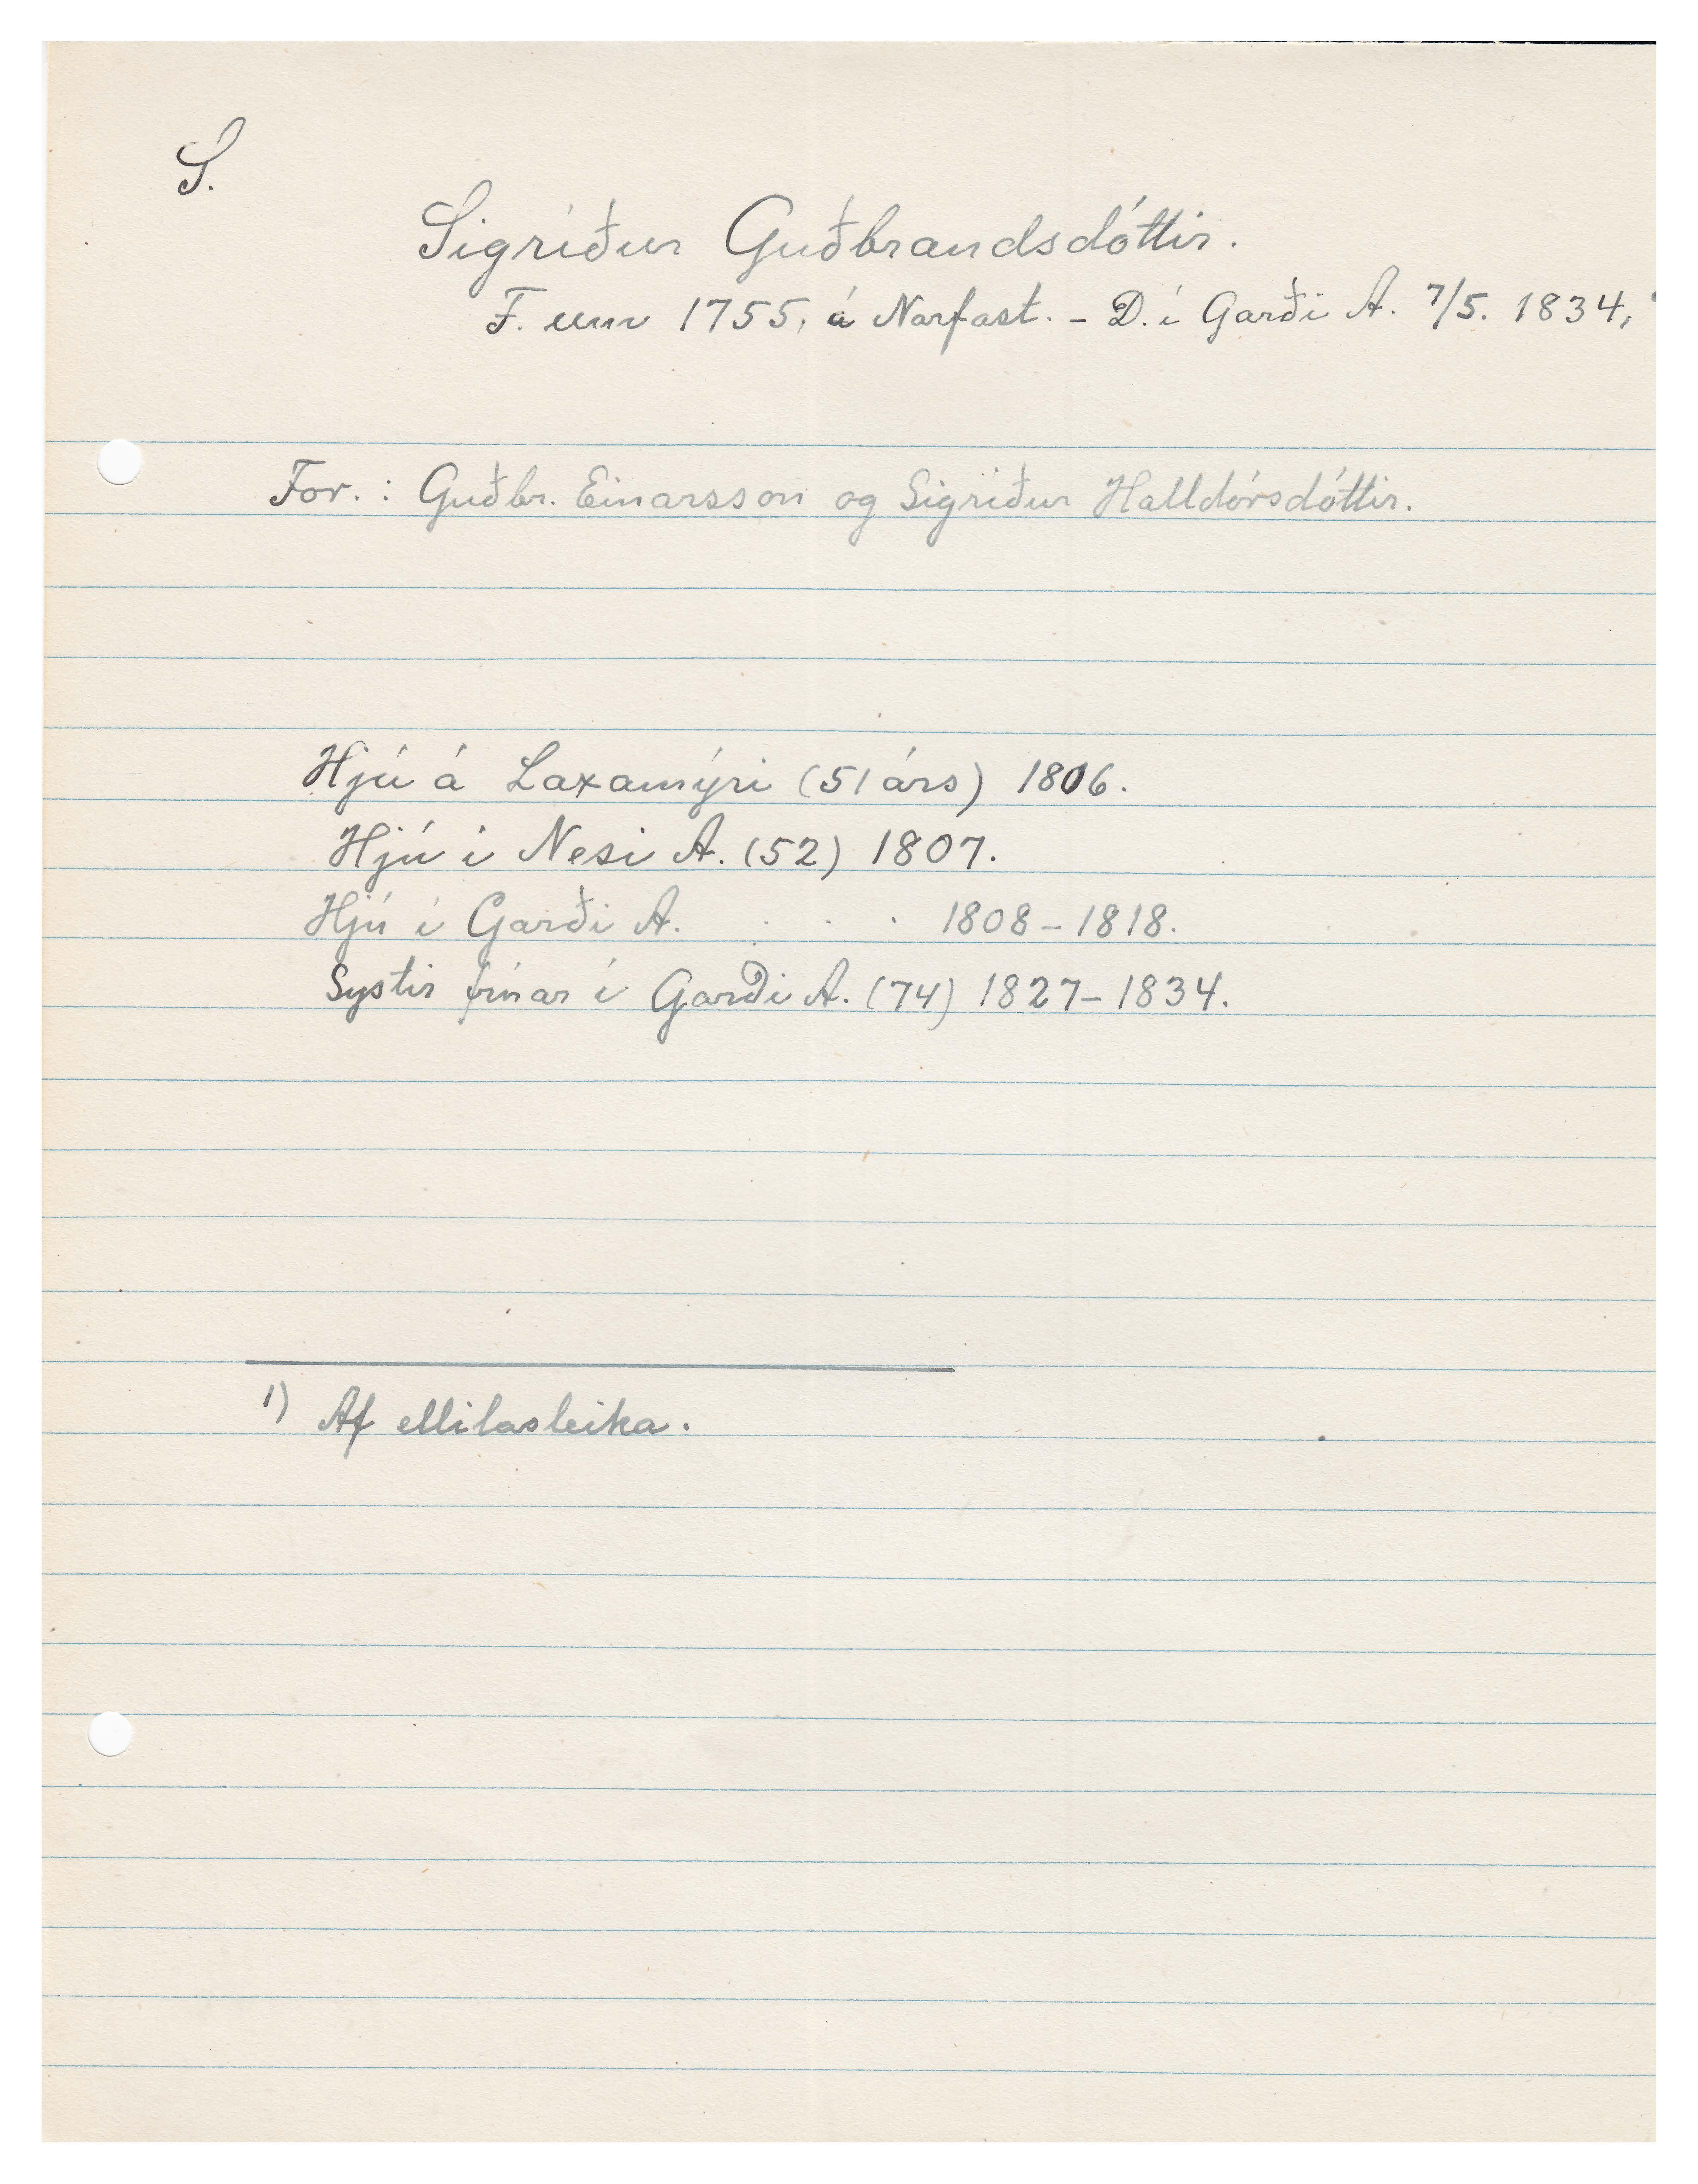 S.
Sigríður Guðbrandsdóttir.
F. um 1755, á Narfast. - D. í Garði A. 7/5. 1834,
For.: Guðbr. Einarsson og Sigríður Halldórsdóttir.
Hjú á Laxamýri (51 árs) 1806.
Hjú í Nesi A. (52) 1807.
Hjú í Garði A. . . . 1808-1818.
Systir frúar í Garði A. (74) 1827-1834.
1) Af ellilasleika.